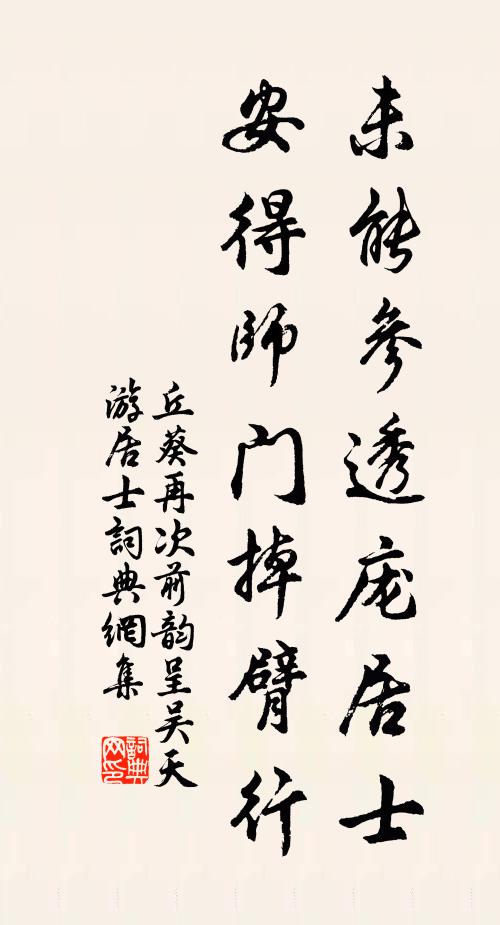 未能參透庞居士
安得師门掉臂行
丘葵再次前韵呈吴天
游居士詞典網集
詞典
网印